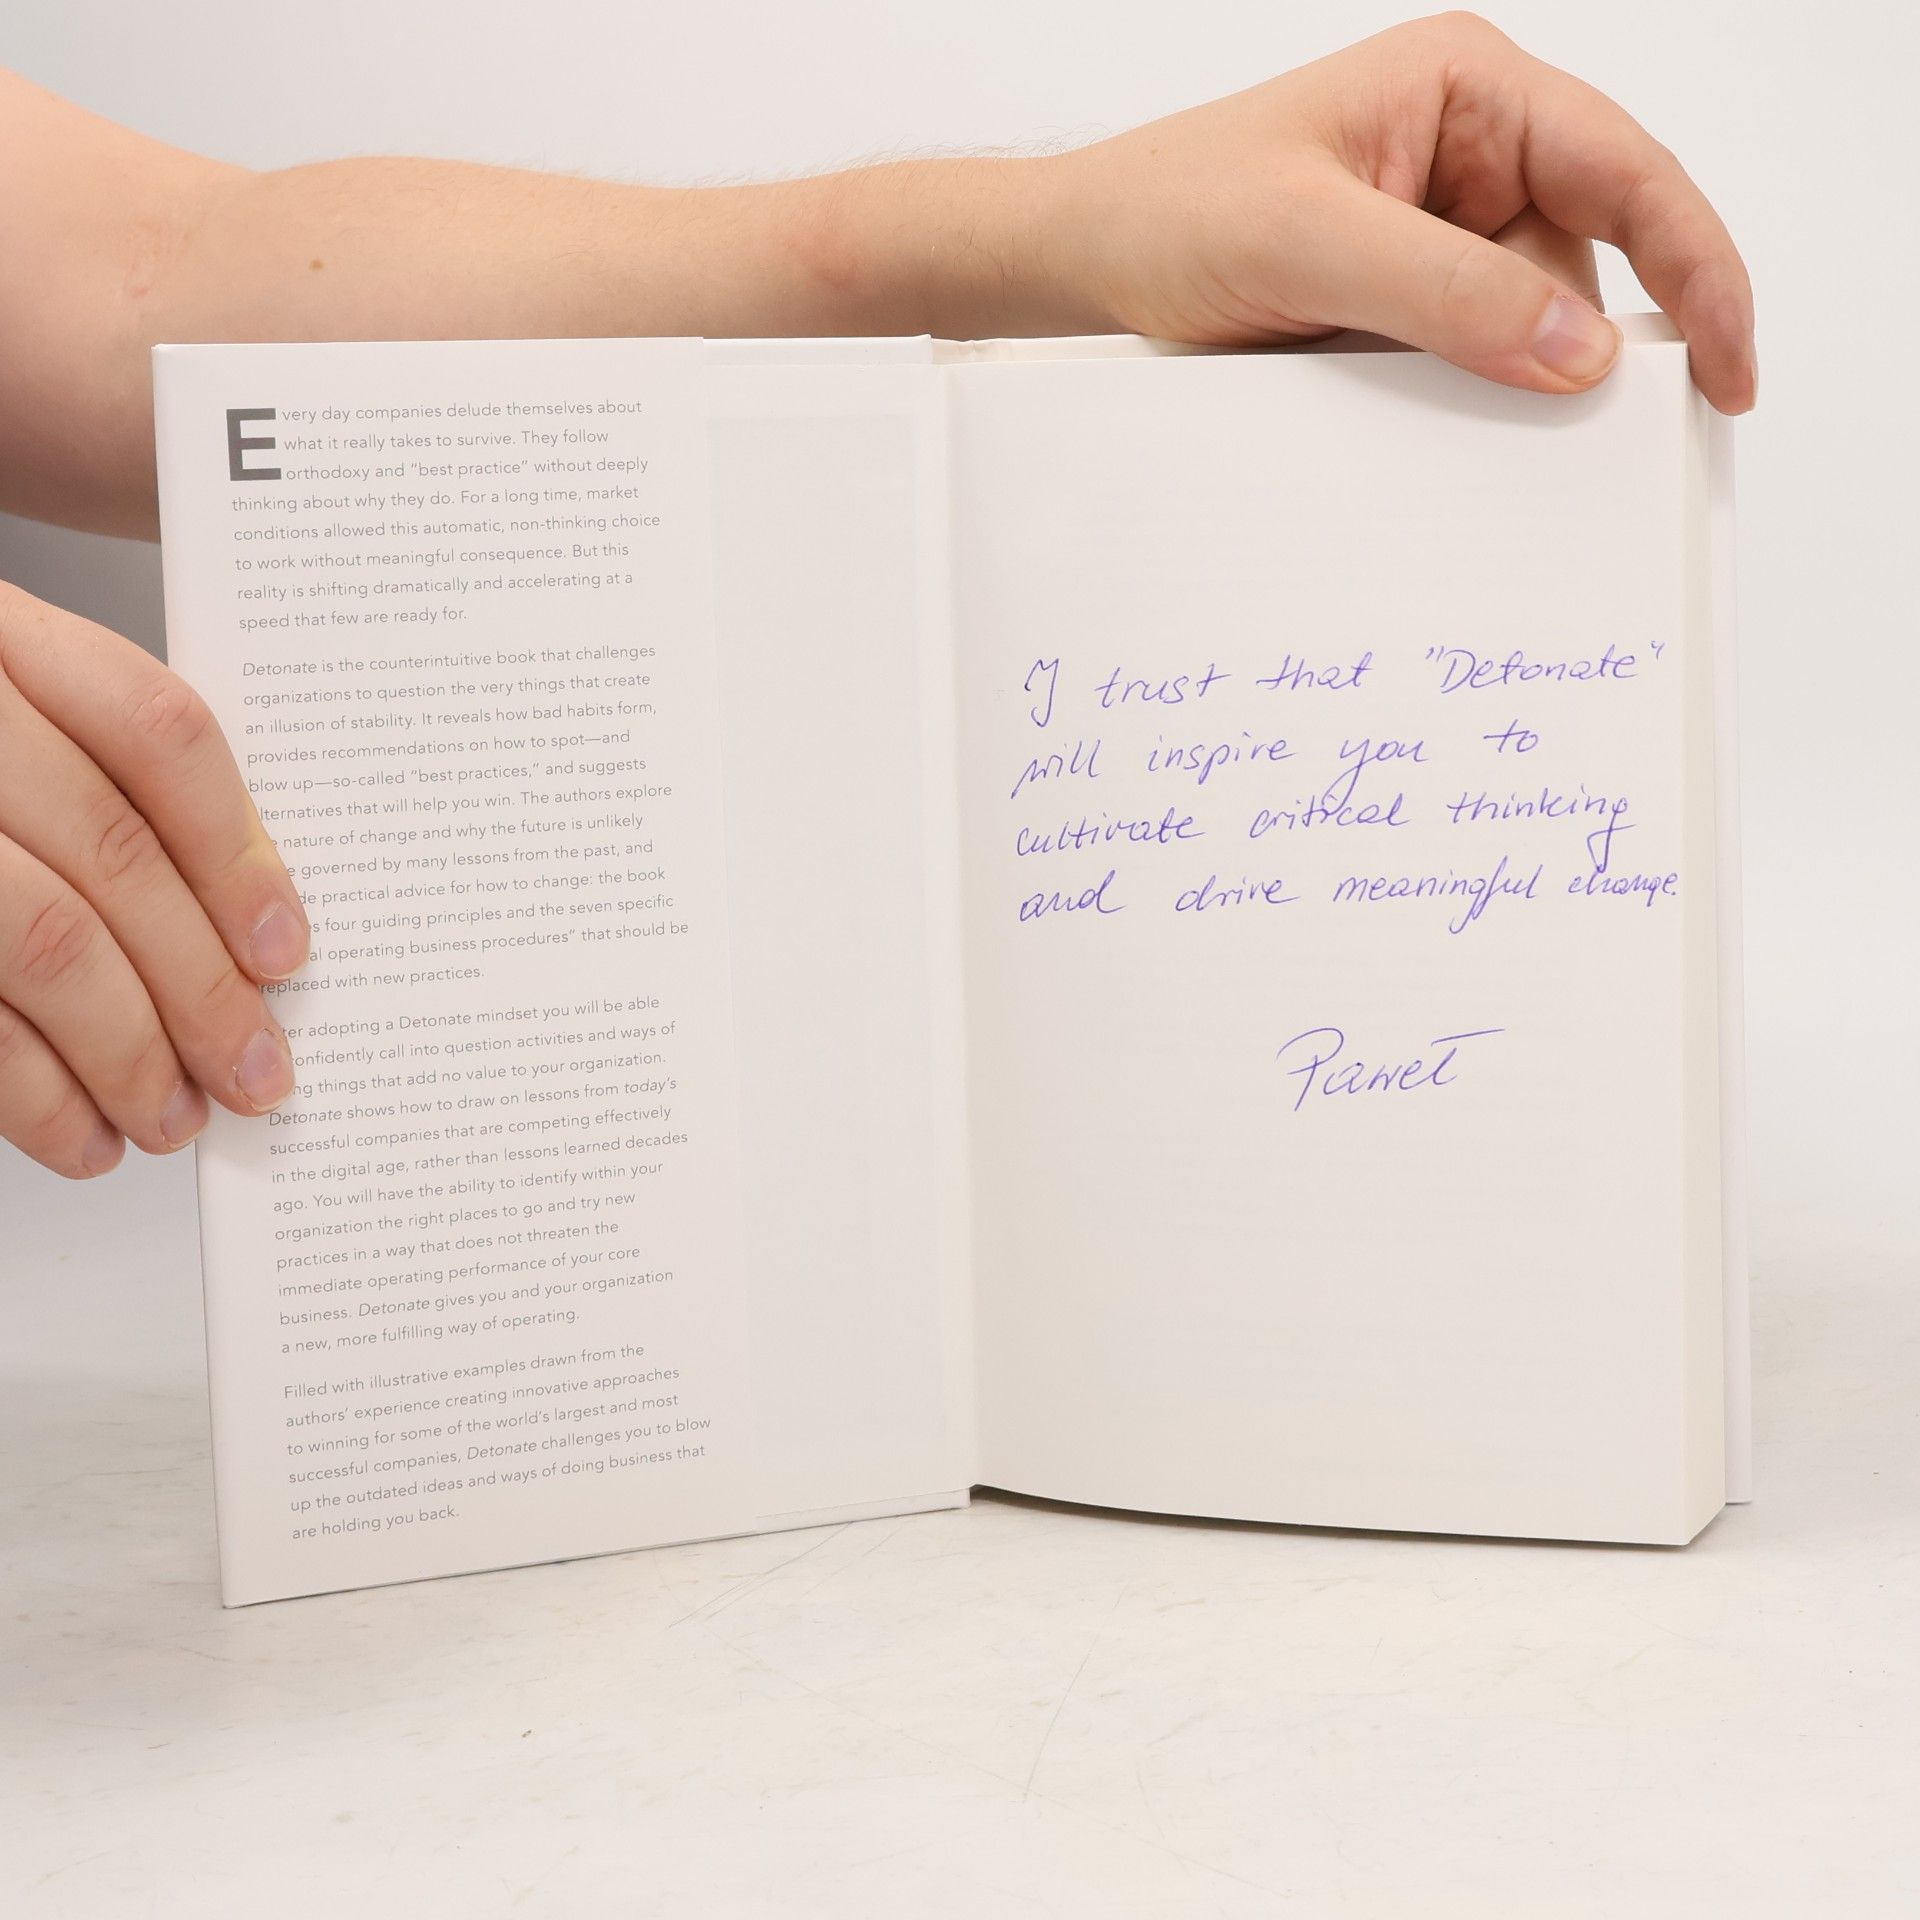 Every day companies delude themselves about
what it really takes to survive. They follow
orthodoxy and “best practice” without deeply
thinking about why they do. For a long time, market
conditions allowed this automatic, non-thinking choice
to work without meaningful consequence. But this
reality is shifting dramatically and accelerating at a
speed that few are ready for.
Detonate is the counterintuitive book that challenges
organizations to question the very things that create
an illusion of stability. It reveals how bad habits form,
provides recommendations on how to spot—and
blow up—so-called “best practices,” and suggests
lternatives that will help you win. The authors explore
nature of change and why the future is unlikely
governed by many lessons from the past, and
practical advice for how to change: the book
four guiding principles and the seven specific
operating business procedures” that should be
replaced with new practices.
ter adopting a Detonate mindset you will be able
onfidently call into question activities and ways of
ng things that add no value to your organization.
Detonate shows how to draw on lessons from today’s
successful companies that are competing effectively
in the digital age, rather than lessons learned decades
ago. You will have the ability to identify within your
organization the right places to go and try new
practices in a way that does not threaten the
immediate operating performance of your core
business. Detonate gives you and your organization
a new, more fulfilling way of operating.
Filled with illustrative examples drawn from the
authors’ experience creating innovative approaches
to winning for some of the world’s largest and most
successful companies, Detonate challenges you to blow
up the outdated ideas and ways of doing business that
are holding you back.
I trust that "Detonate"
will inspire you to
cultivate critical thinking
and drive meaningful change.
Paweł